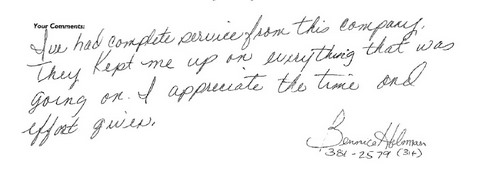 Your Comments:
I've had complete service from this company.
They kept me up on everything that was
going on. I appreciate the time and
effort given.
Bennice Holman
381-2579 (314)